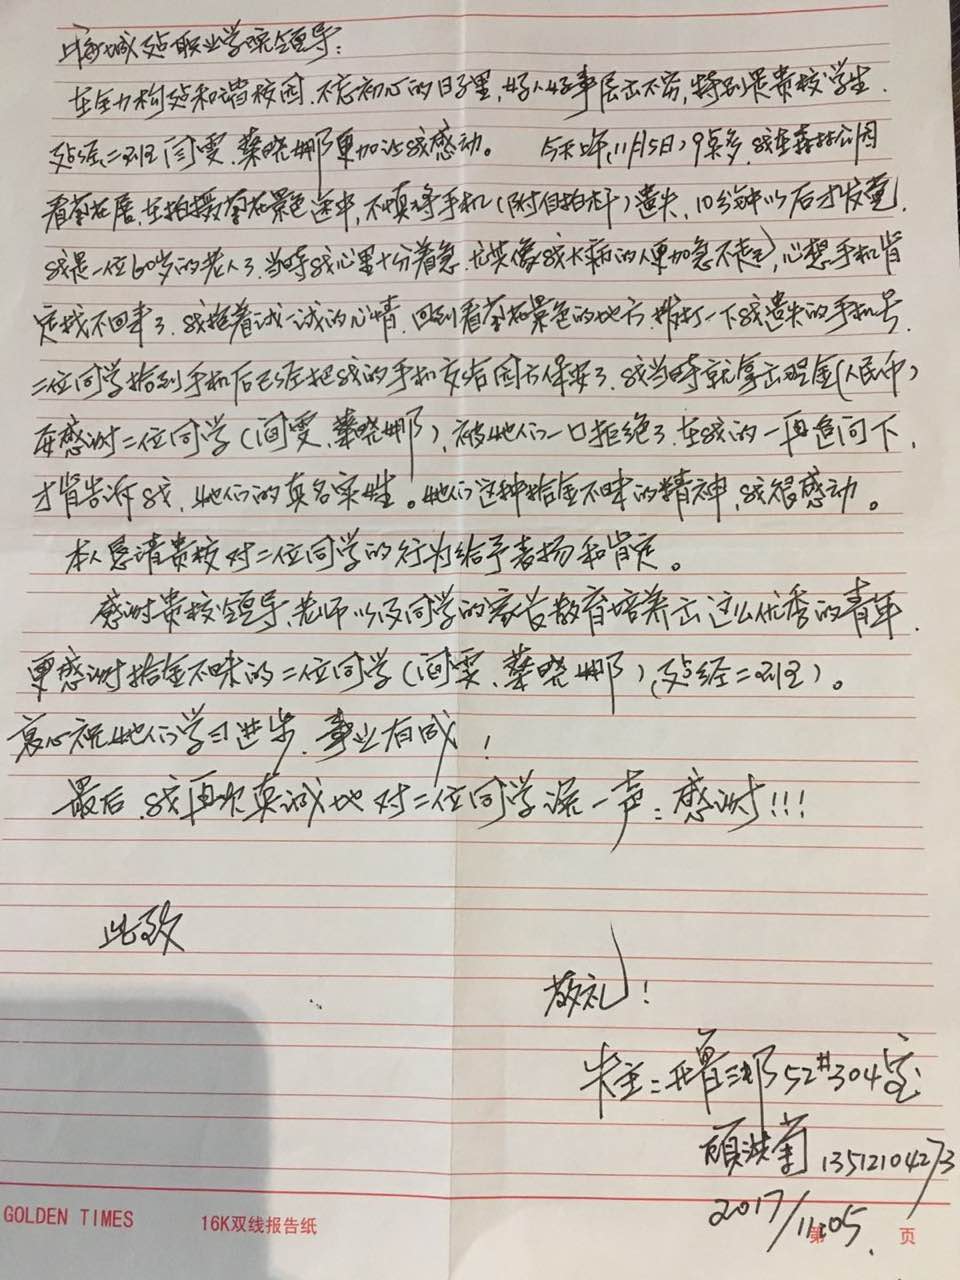 上海城建职业学院领导:
在全力构建和谐校园,不忘初心的日子里,好人好事层出不穷,特别是贵校学生,
建经二班闫雯、蔡晓娜更加让我感动。 今天上午,11月5日,9点多,我在森林公园
看菊花展,在拍摄菊花景色途中,不慎将手机(附自拍杆)遗失,10分钟以后才发觉,
我是一位60岁的老人了,当时我心里十分着急,尤其像我大病的人更加急不起,心想手机肯
定找不回来了,我抱着试一试的心情,回到看菊花景色的地方,拨打一下我遗失的手机号,
二位同学拾到手机后已经把我的手机交给园方保安了,我当时就拿出现金(人民币)
要感谢二位同学(闫雯、蔡晓娜),被她们一口拒绝了,在我的一再追问下,
才肯告诉我,她们的真名实姓。她们这种拾金不昧的精神,我很感动。
本人恳请贵校对二位同学的行为给予表扬和肯定。
感谢贵校领导、老师以及同学的家长教育培养出这么优秀的青年,
更感谢拾金不昧的二位同学(闫雯、蔡晓娜)(建经二班)。
衷心祝她们学习进步,事业有成!
最后,我再次真诚地对二位同学深一声:感谢!!!
此致
敬礼!
家住:开鲁三邨52#304室
顾洪菊 13512104273
2017/11.05.
GOLDEN TIMES 16K双线报告纸 第 页